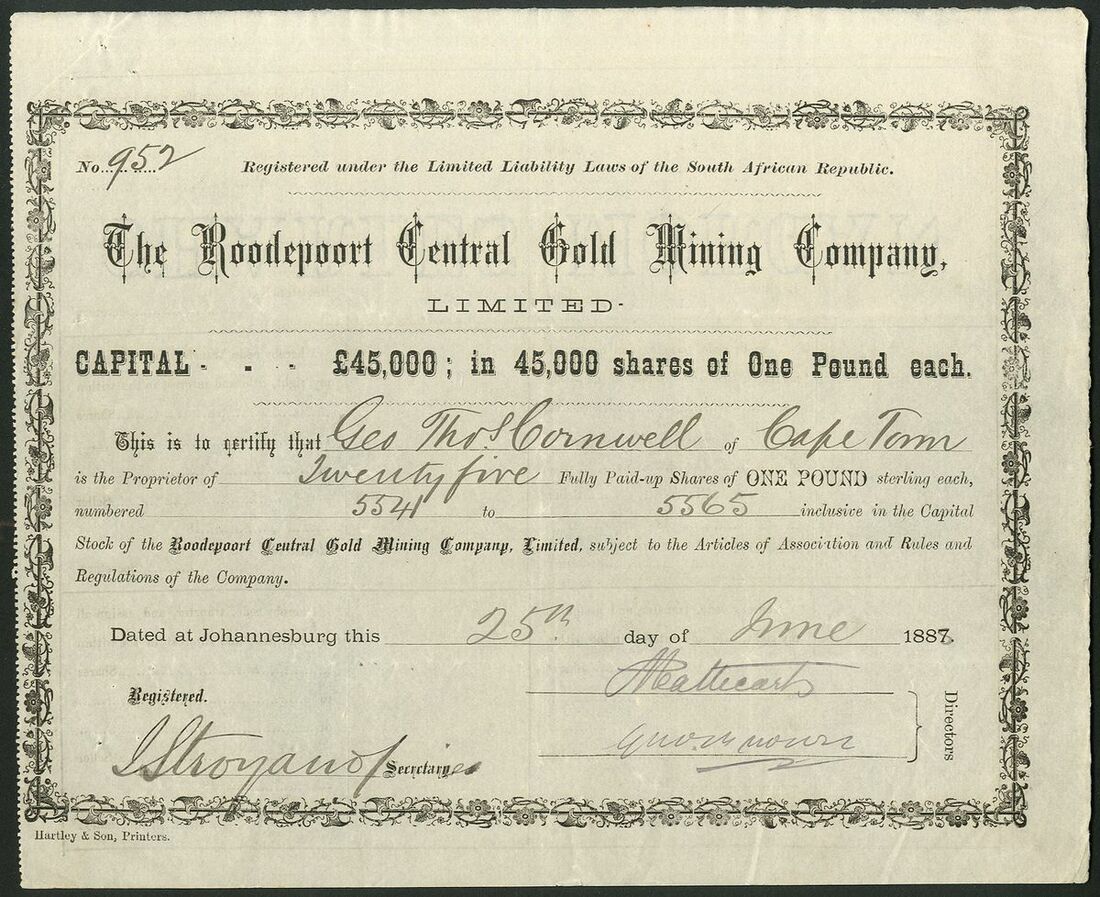 No. 952
Registered under the Limited Liability Laws of the South African Republic.
The Roodepoort Central Gold Mining Company,
LIMITED.
CAPITAL - - - £45,000 ; in 45,000 shares of One Pound each.
This is to certify that Geo Thos Cornwell of Cape Town
is the Proprietor of Twenty five Fully Paid-up Shares of ONE POUND sterling each,
numbered 5541 to 5565 inclusive in the Capital
Stock of the Roodepoort Central Gold Mining Company, Limited, subject to the Articles of Association and Rules and
Regulations of the Company.
Dated at Johannesburg this 25th day of June 188
Registered.
Secretary
Directors
Hartley & Son, Printers.